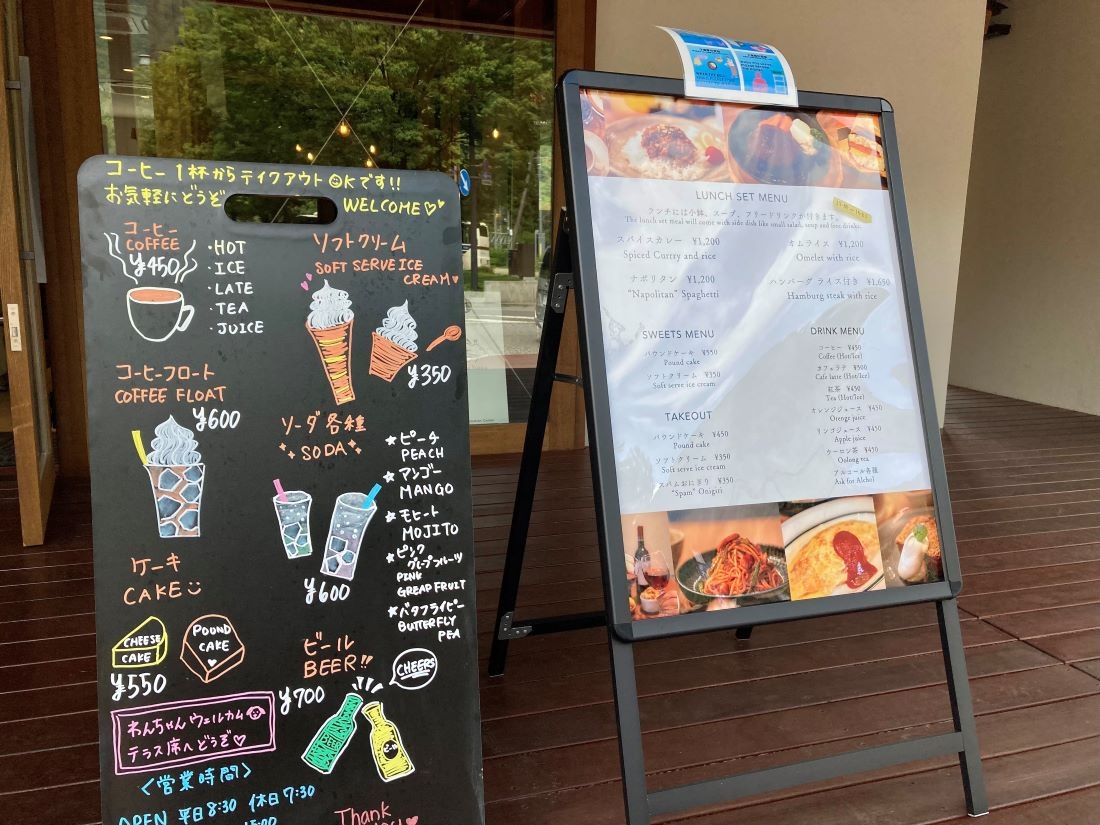 コーヒー 1杯から テイクアウト OKです!!
お気軽にどうぞ WELCOME♡♡
コーヒー
COFFEE
¥450
・HOT
・ICE
・LATE
・TEA
・JUICE
ソフトクリーム
SOFT SERVE ICE
CREAM♥
¥350
コーヒーフロート
COFFEE FLOAT
¥600
ソーダ各種
SODA
¥600
★ピーチ
PEACH
★マンゴー
MANGO
★モヒート
MOJITO
★ピンク
グレープフルーツ
PINK
GREAP FRUIT
★バタフライピー
BUTTERFLY
PEA
ケーキ
CAKE
CHEESE
CAKE
POUND
CAKE
¥550
ビール
BEER!!
¥700
CHEERS
BEER
ビール
わんちゃんウェルカム
テラス席へどうぞ♡
〈営業時間〉
OPEN 平日 8:30 休日 7:30
Thank
LUNCH SET MENU
ランチには小鉢、スープ、フリードリンクが付きます。
The lunch set meal will come with side dish like small salad, soup and free drinks.
スパイスカレー ¥1,200
Spiced Curry and rice
オムライス ¥1,200
Omelet with rice
ナポリタン ¥1,200
"Napolitan" Spaghetti
ハンバーグ ライス付き ¥1,650
Hamburg steak with rice
SWEETS MENU
パウンドケーキ ¥550
Pound cake
ソフトクリーム ¥350
Soft serve ice cream
TAKEOUT
パウンドケーキ ¥450
Pound cake
ソフトクリーム ¥350
Soft serve ice cream
スパムおにぎり ¥350
"Spam" Onigiri
DRINK MENU
コーヒー ¥450
Coffee (Hot/Ice)
カフェラテ ¥500
Cafe latte (Hot/Ice)
紅茶 ¥450
Tea (Hot/Ice)
オレンジジュース ¥450
Orenge juice
リンゴジュース ¥450
Apple juice
ウーロン茶 ¥450
Oolong tea
アルコール各種
Ask for Alchol